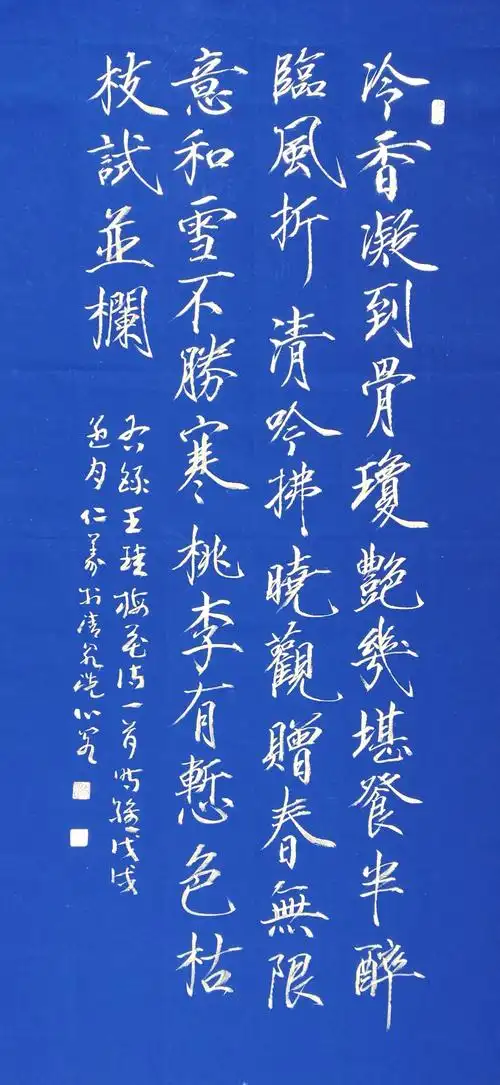 冷香凝到骨瓊艷幾堪餐半醉
臨風折清吟拂曉觀贈春無限
意和雪不勝寒桃李有慙色枯
枝試並欄
右錄王珪梅花詩一首時維戊戌
月仁義於清